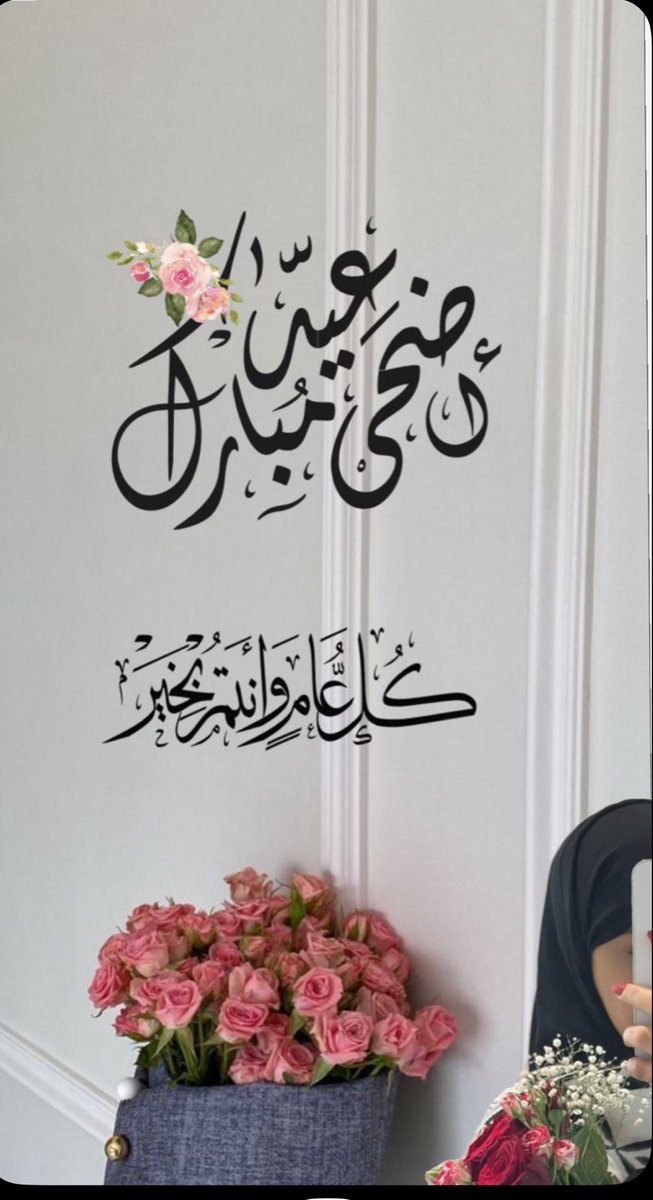 عيد أضحى مبارك
كُل عَامٍ وَأنتُم بخَيْر